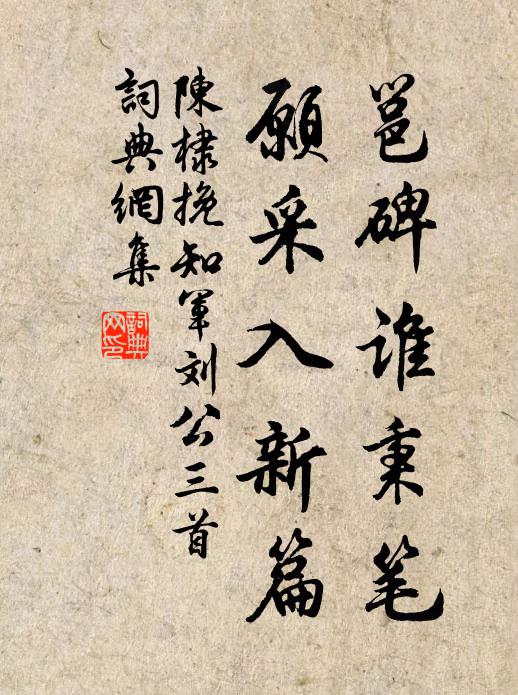 邕碑谁秉笔
願采入新篇
陳棣挽知軍刘公三首
詞典網集
詞典網印